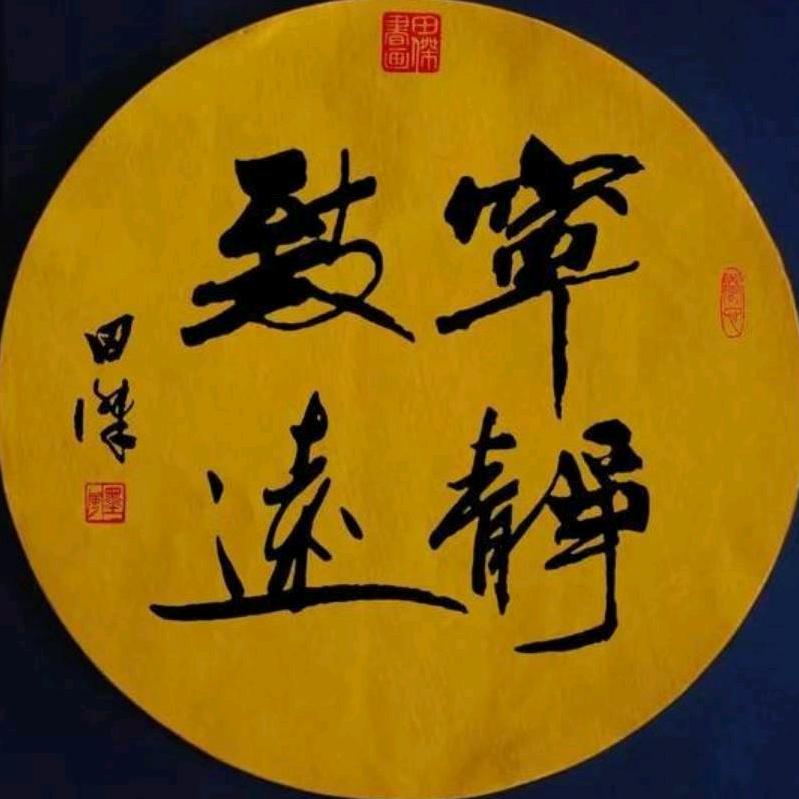 寧靜
致遠
田傑
田傑書画